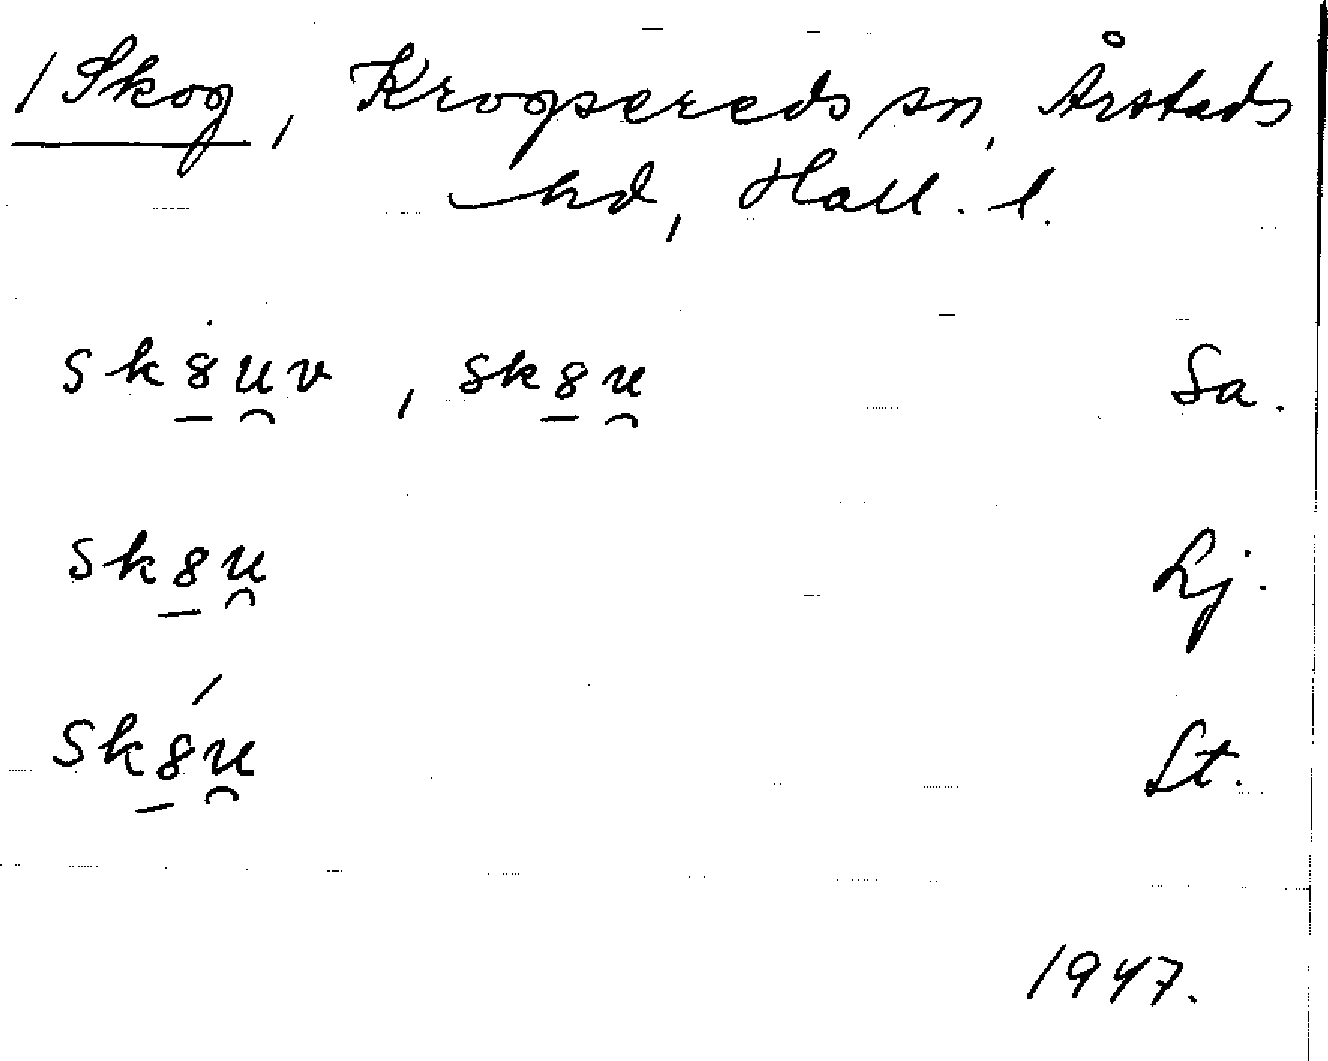 /Skog, Krogsereds sn, Årstads
hd, Hall. l.
sk8u̯v, sk8u̯ Sa.
sk8u̯ Lj.
sk8́u̯ St.
1947.